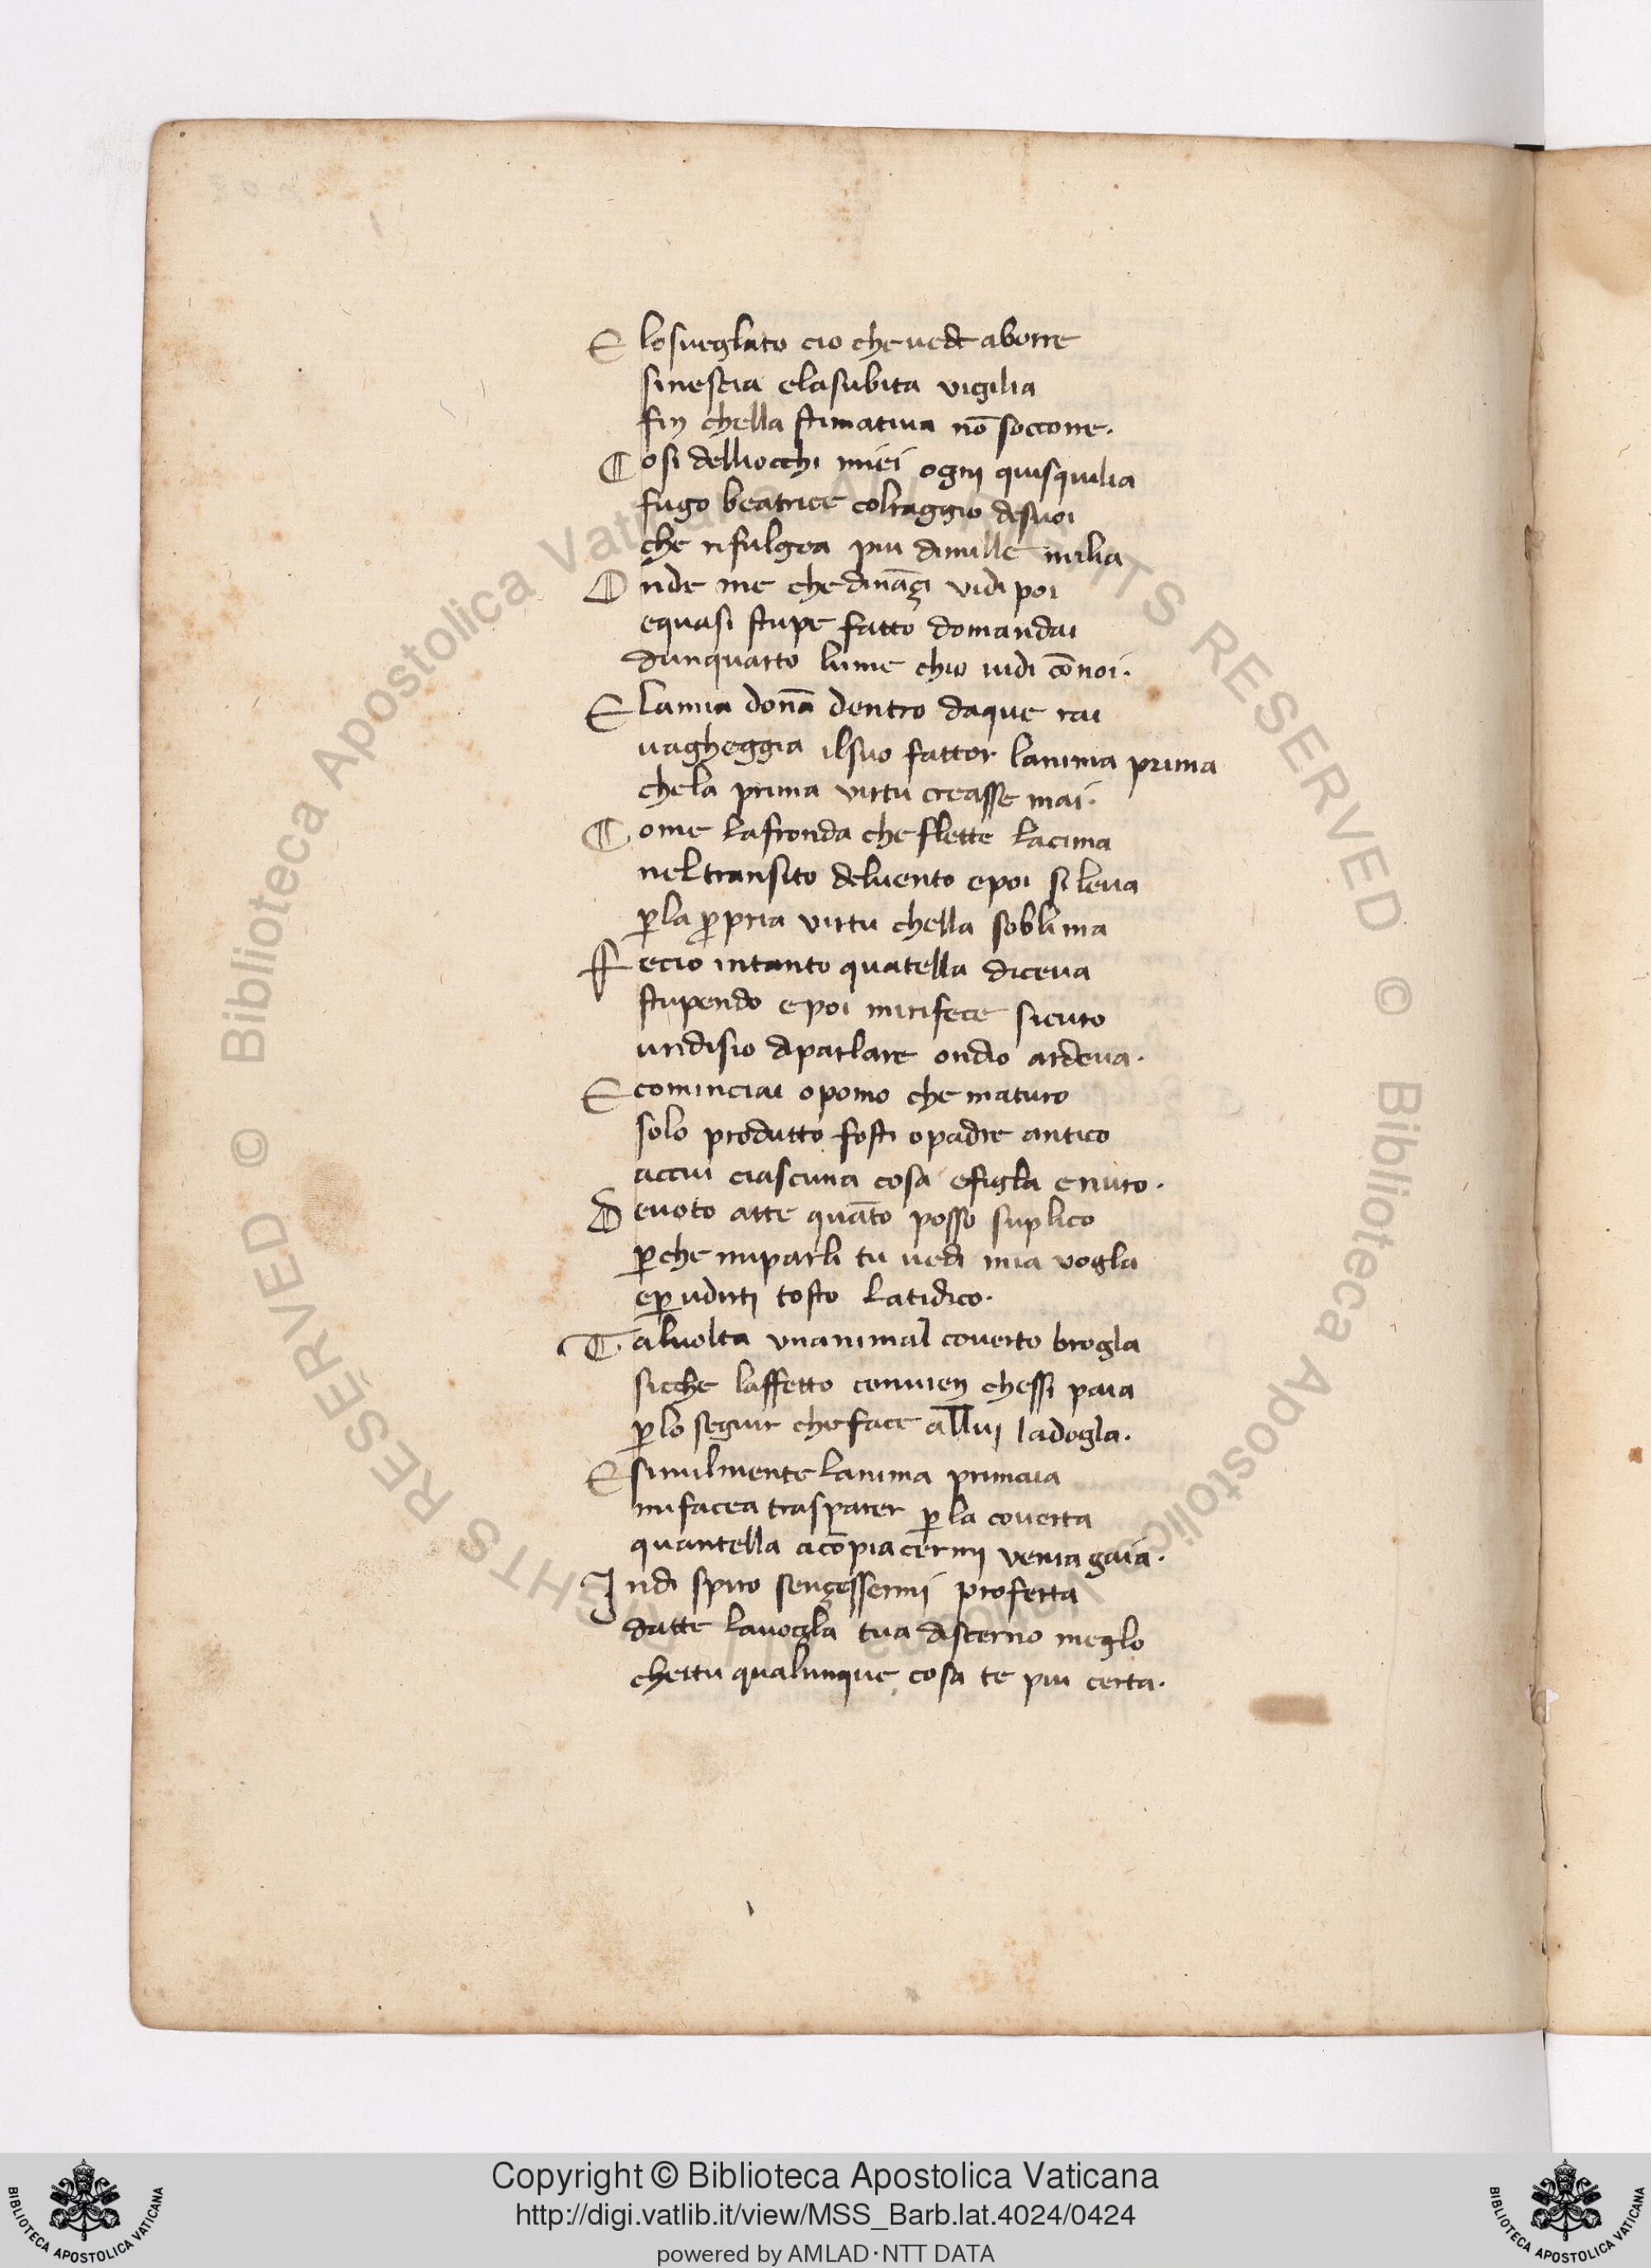 E losueglato cio cheuede aborre
sinescia elasubita vigilia
fin chella stimatiua nō soccorre.
C osi delliocchi miei ogni quisquilia
fugo beatrice colraggio desuoi
che rifulgea piu dimille milia
O nde me chedināçi vidi poi
equasi stupe fatto domandai
dunquarto lume chio uidi cō noi.
E lamia donā dentro daque rai
uagheggia ilsuo fattor lanima prima
chela prima virtu creasse mai.
C ome lafronda che flette lacima
neltransito deluento epoi si leua
ꝑla ꝓpria virtu chella soblima
F ecio intanto quatella diceua
stupendo epoi mirifece sicuro
undisio deparlare ondio ardeua.
E cominciai opomo che maturo
solo produtto fosti opadre antico
accui ciascuna cosa efigla enuro.
D euoto atte quāto posso suplico
ꝑche miparli tu uedi mia vogla
eꝑ udirti tosto latidico.
T aluolta vnanimal couerto brogla
sicche laffetto conuien chessi paia
ꝑlo seguir cheface allui ladogla.
E similmente lanima primaia
mifacea trasparer ꝑ la couerta
quantella acōpiacermi venia gaia.
I ndi spiro sençessermi proferta
datte lauogla tua discerno meglo
chettu qualunque cosa te piu certa.
© Biblioteca Apostolica Vaticana ALL RIGHTS RESERVED © Biblioteca Apostolica Vaticana ALL RIGHTS RESERVED
Copyright © Biblioteca Apostolica Vaticana
http://digi.vatlib.it/view/MSS_Barb.lat.4024/0424
powered by AMLAD·NTT DATA
BIBLIOTECA APOSTOLICA VATICANA
BIBLIOTECA APOSTOLICA VATICANA